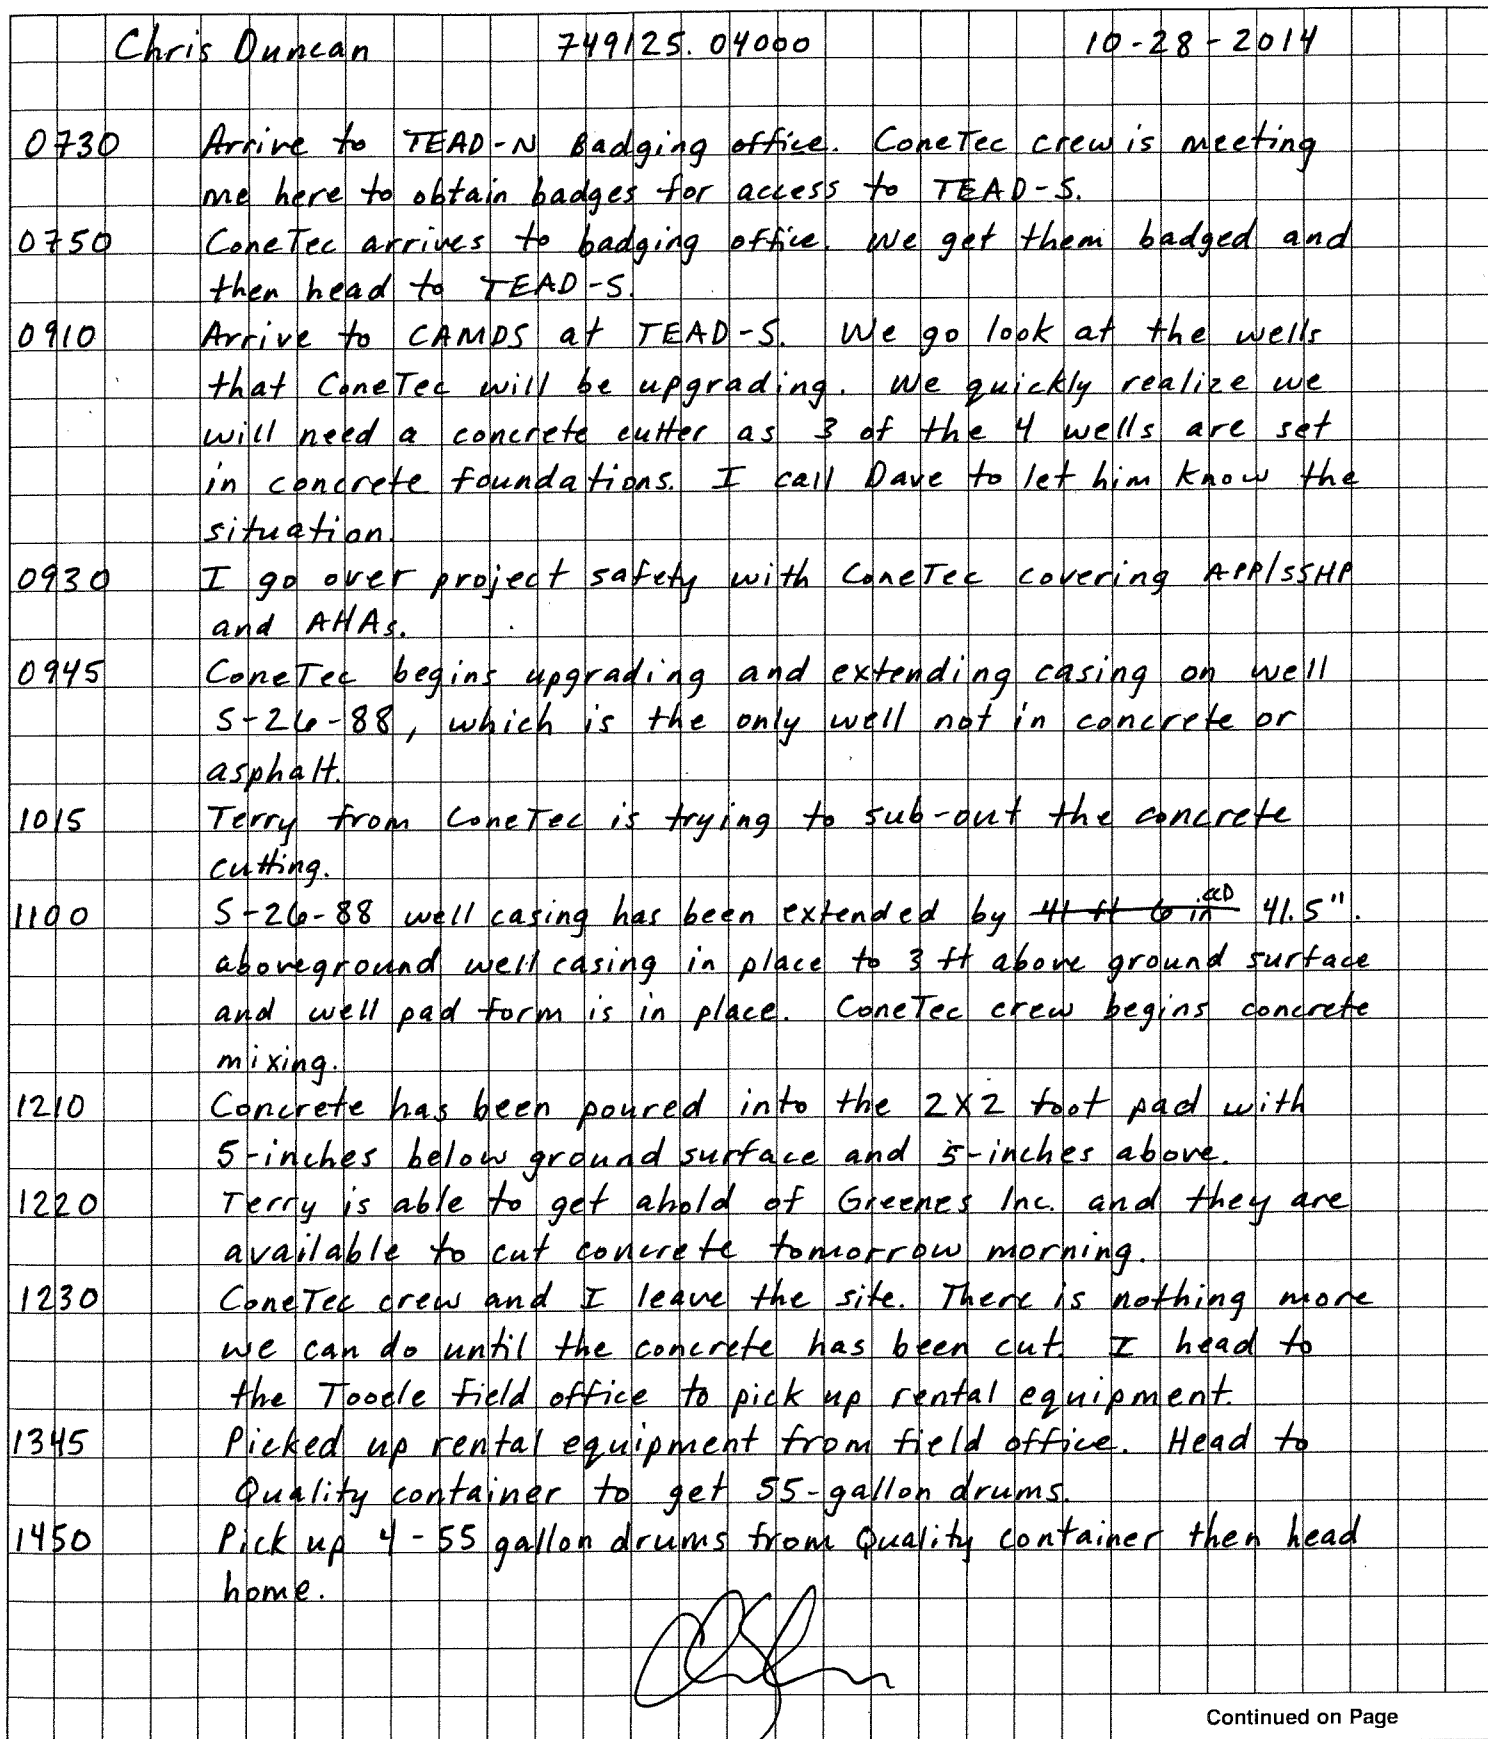 Chris Duncan 749125.04000 10-28-2014
0730 Arrive to TEAD-N Badging office. ConeTec crew is meeting
me here to obtain badges for access to TEAD-S.
0750 ConeTec arrives to badging office. We get them badged and
then head to TEAD-S.
0910 Arrive to CAMDS at TEAD-S. We go look at the wells
that ConeTec will be upgrading. We quickly realize we
will need a concrete cutter as 3 of the 4 wells are set
in concrete foundations. I call Dave to let him know the
situation.
0930 I go over project safety with ConeTec covering APP/SSHP
and AHAs.
0945 ConeTec begins upgrading and extending casing on well
S-26-88, which is the only well not in concrete or
asphalt.
1015 Terry from ConeTec is trying to sub-out the concrete
cutting.
1100 S-26-88 well casing has been extended by 41 ft 6 in CCD 41.5".
aboveground well casing in place to 3 ft above ground surface
and well pad form is in place. ConeTec crew begins concrete
mixing.
1210 Concrete has been poured into the 2X2 foot pad with
5-inches below ground surface and 5-inches above.
1220 Terry is able to get ahold of Greenes Inc. and they are
available to cut concrete tomorrow morning.
1230 ConeTec crew and I leave the site. There is nothing more
we can do until the concrete has been cut. I head to
the Tooele field office to pick up rental equipment.
1345 Picked up rental equipment from field office. Head to
Quality container to get 55-gallon drums.
1450 Pick up 4-55 gallon drums from Quality container then head
home.
Continued on Page